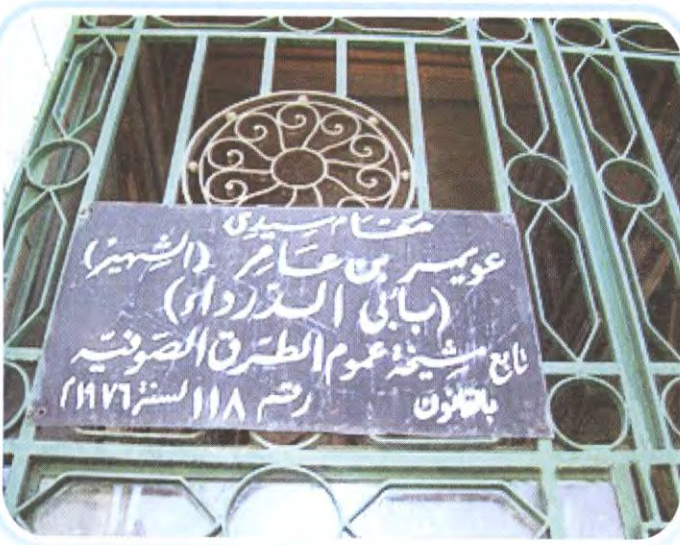 مقام سيدى
عويمر بن عامر (الشهير)
(بأبى الدرداء)
تابع مشيخة عموم الطرق الصوفية
بالقانون رقم ١١٨ لسنة ١٩٧٦م